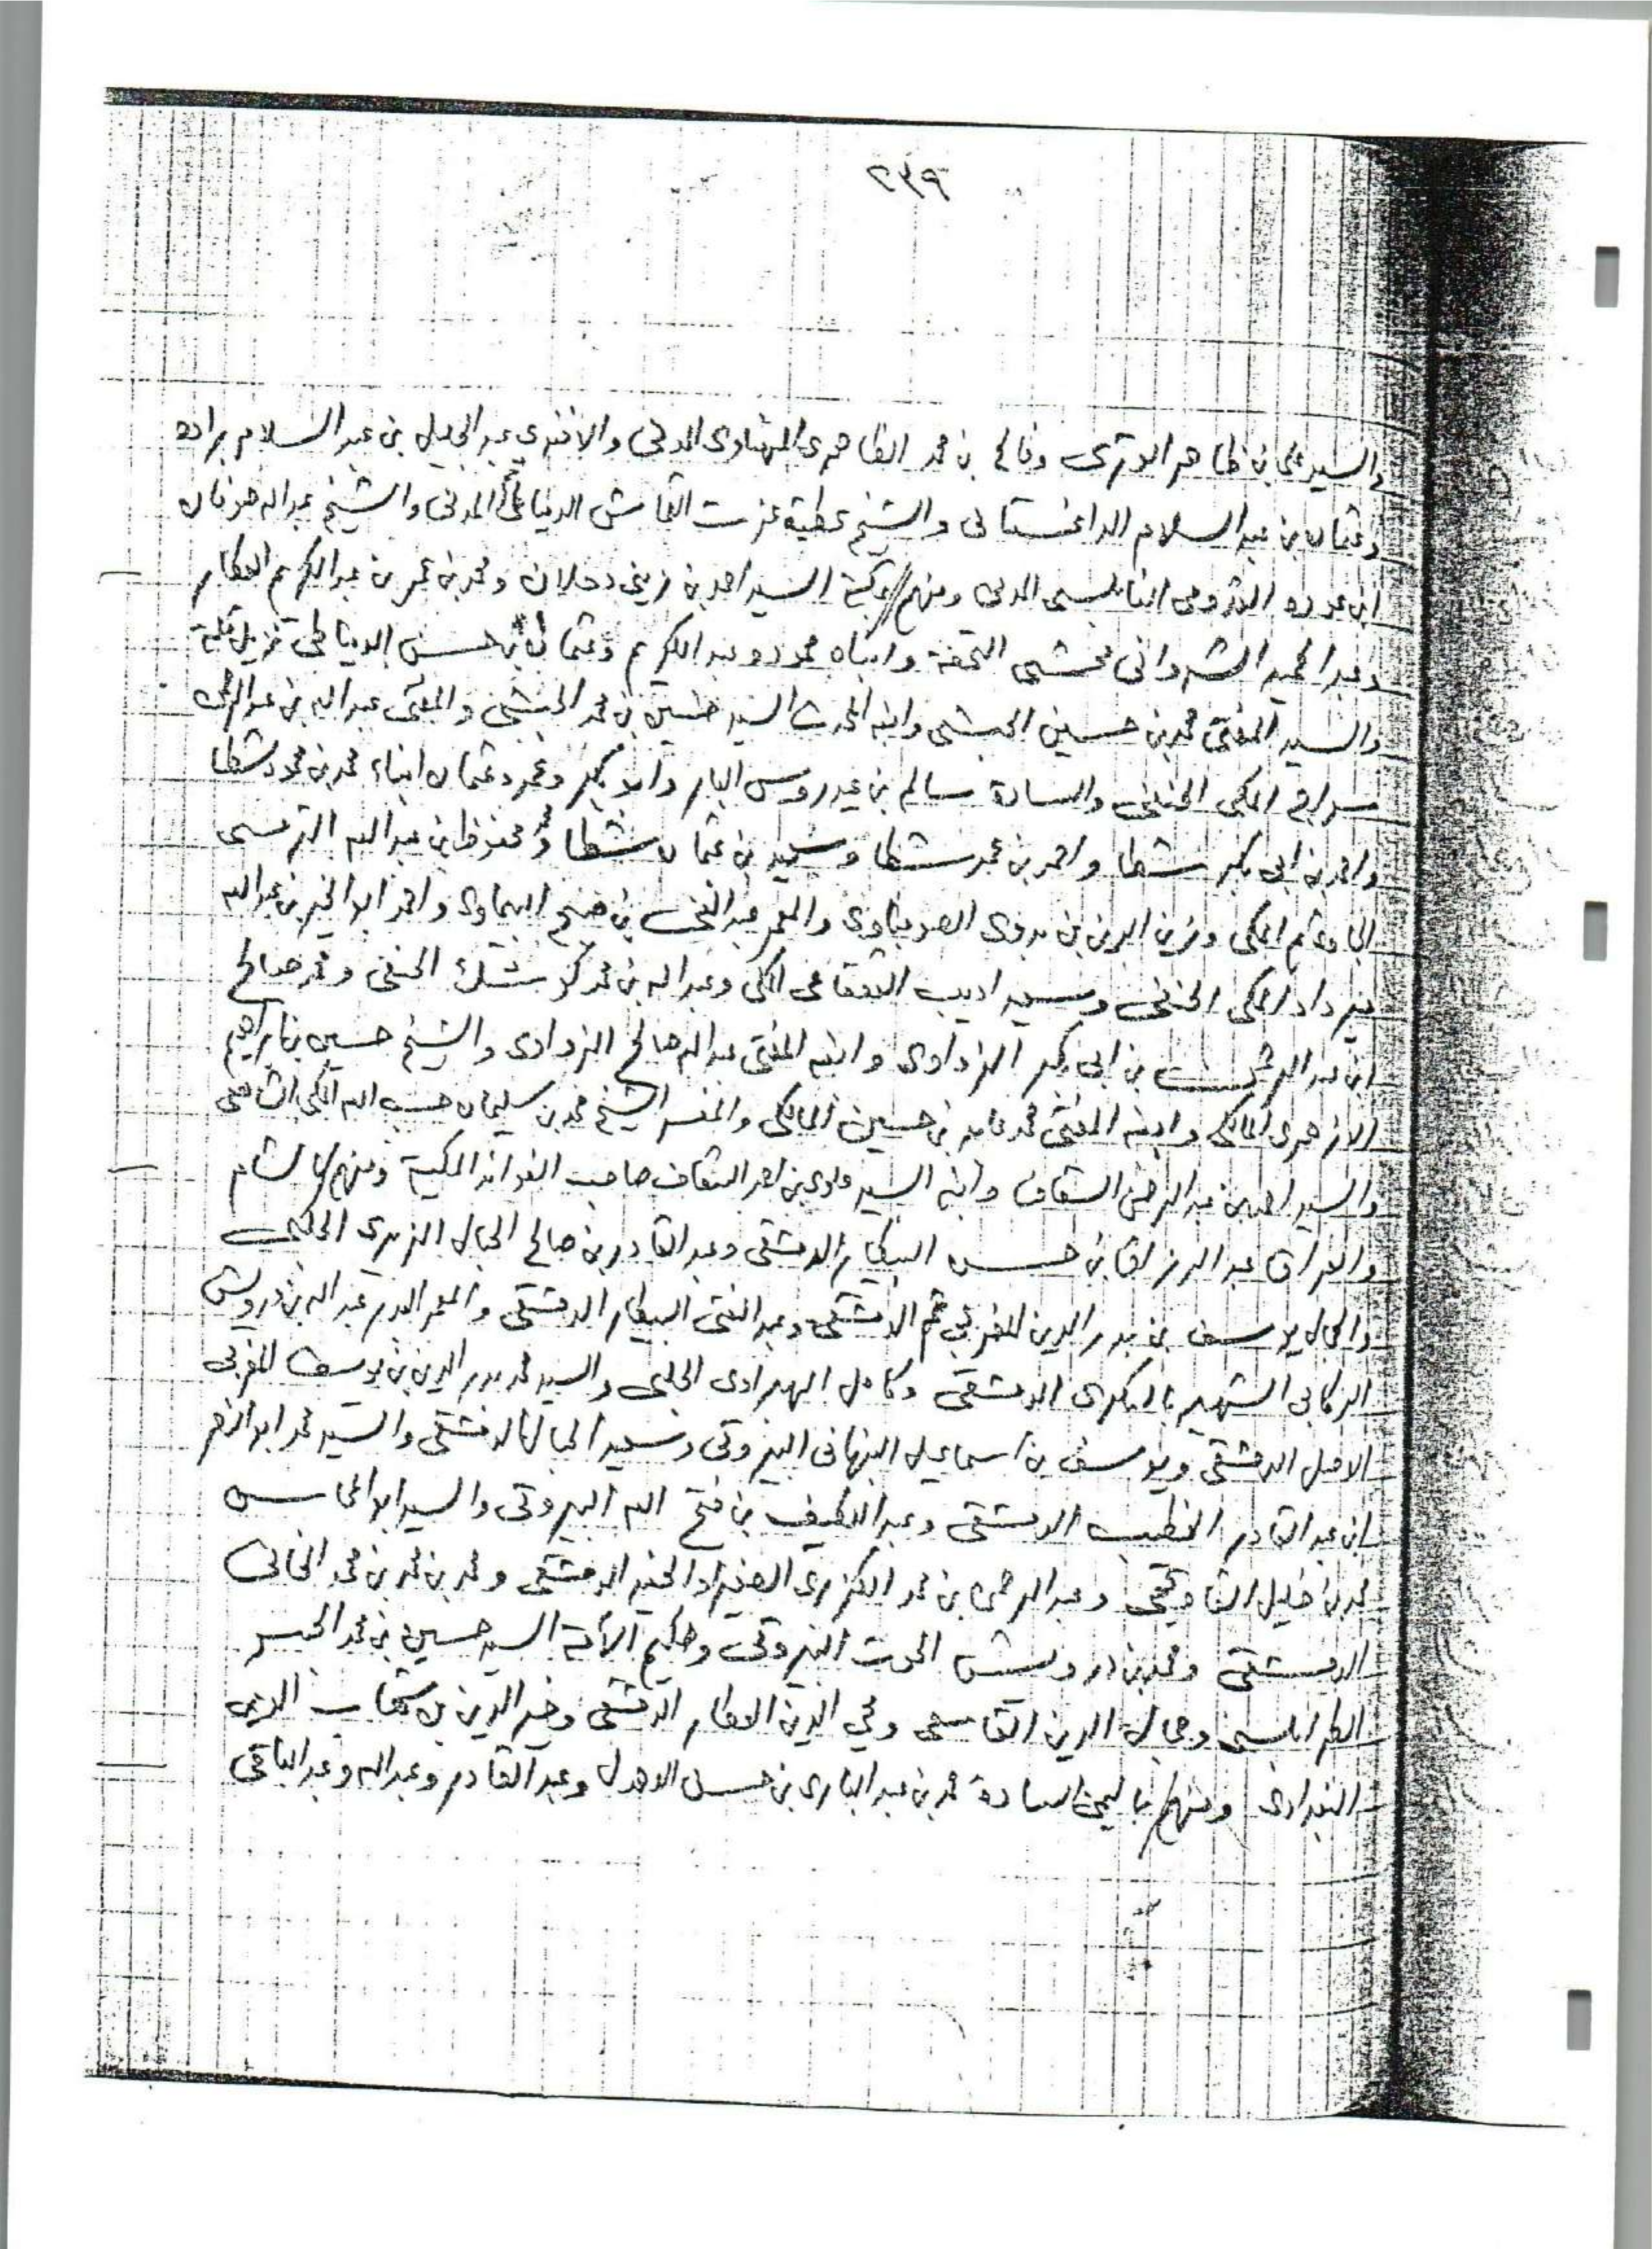 ٢٣٩
والسيد علي بن ظاهر الوتري وفالح بن محمد الظاهري المهنوي المدني والافندي عبد الجليل بن عبد السلام براده
وعثمان بن عبد السلام الداغستاني والشيخ عطية عزت القماش الدمياطي المدني والشيخ عبد الله صوفان
ابن عوده القدومي النابلسي المدني ومنهم بمكة السيد احمد بن زيني دحلان ومحمد بن عمر بن عبد الكريم العطار
وعبد الحميد الشرواني محشي التحفة وابناه محمد وعبد الكريم وعثمان بن حسن الدمياطي نزيل مكة
والسيد المفتي محمد بن حسين الحبشي وابنه المحدث السيد حسين بن محمد الحبشي والمفتي عبد الله بن عبد الرحمن
سراج المكي الحنفي والسادة سالم بن عيدروس البار وابو بكر وعمر وعثمان ابناء محمد بن محمود شطا
واحمد بن ابي بكر شطا واحمد بن عمر شطا وسعيد بن عثمان شطا ومحمد محفوظ بن عبد الله الترمسي
الجاوي ثم المكي وزين الدين بن بدوي الصومباوي والمعمر عبد الغني بن صبح البيماوي واحمد ابو الخير بن عبد الله
مير داد المكي الحنفي وسعيد اديب القعقاعي المكي وعبد الله بن محمد كوشك الحنفي ومحمد صالح
ابن عبد الرحمن بن ابي بكر الزواوي وابنه المفتي عبد الله صالح الزواوي والشيخ حسين بن ابراهيم
الازهري المالكي وابنه المفتي محمد عابد بن حسين المالكي والمفسر الشيخ محمد بن سليمان حسب الله المكي الشافعي
والسيد احمد بن عبد الرحمن السقاف وابنه السيد علوي بن احمد السقاف صاحب الفوائد المكية ومنهم بالشام
والعراق عبد الرزاق بن حسن البيطار الدمشقي وعبد القادر بن صالح الجبال الزبيري الحلبي
والجمال يوسف بن بدر الدين المغربي ثم الدمشقي وعبد الغني البيطار الدمشقي والمعمر البدر عبد الله بن درويش
الركابي الشهير بالسكري الدمشقي وكامل الهبراوي الحلبي والسيد محمد بدر الدين بن يوسف المغربي
الاصل الدمشقي ويوسف بن اسماعيل النبهاني البيروتي وسعيد الحبال الدمشقي والسيد محمد ابو النصر
ابن عبد القادر الخطيب الدمشقي وعبد اللطيف بن فتح الله البيروتي والسيد ابو المحاسن
محمد بن خليل القاوقجي وعبد الرحمن بن محمد الكزبري الصغير او الحفيد الدمشقي ومحمد بن محمد بن محمد الخاني
الدمشقي ومحمد بن درويش الحوت البيروتي وحكيم الأمة السيد حسين بن محمد الجسر
الطرابلسي وجمال الدين القاسمي ومحي الدين العطار الدمشقي وخير الدين بن شهاب الدين
البغدادي ومنهم باليمن السادة محمد بن عبد الباري بن حسن الاهدل وعبد القادر وعبد الله وعبد الباقي